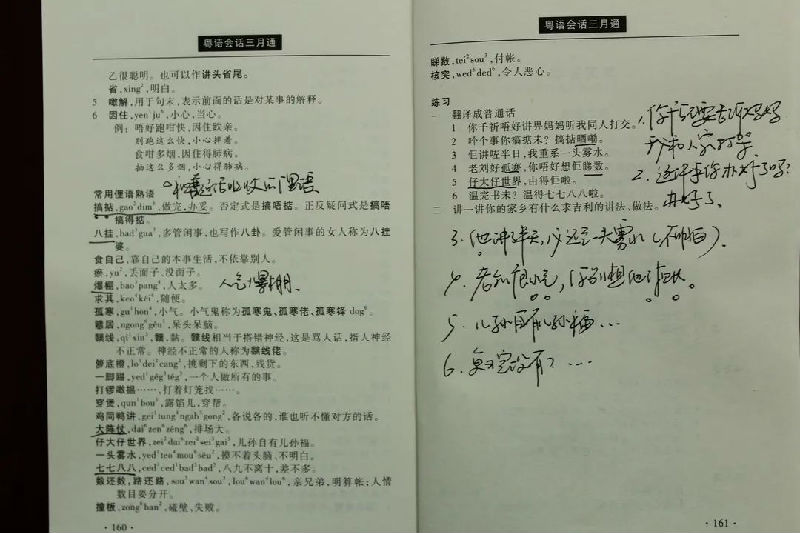 粤语会话三月通
乙很聪明。也可以作讲头省尾。
省,xing²,明白。
5 㗎解,用于句末,表示前面的话是对某事的解释。
6 因住,yen¹ju⁶,小心,当心。
例:唔好跑咁快,因住跌亲。
别跑这么快,小心摔着。
食咁多烟,因住得肺病。
抽这么多烟,小心得肺病。
常用俚语熟语
搞掂,gao²dim⁶,做完,办妥。否定式是搞唔掂。正反疑问式是搞唔
搞得掂。
八卦,bad³gua³,多管闲事,也写作八卦。爱管闲事的女人称为八卦
婆。
食自己,靠自己的本事生活,不依靠别人。
瘀,yu²,丢面子、没面子。
爆棚,bao³pang⁴,人太多。
人气爆棚.
求其,keo⁴kéi⁴,随便。
孤寒,gu¹hon⁴,小气。小气鬼称为孤寒鬼、孤寒佬、孤寒
戆居,ngong⁶gêu¹,呆头呆脑。
黐线,qi¹xin³,黐,黏。黐线相当于搭错神经,这是骂人话,指人神经
不正常。神经不正常的人称为黐线佬。
箩底橙,lo⁴dei²cang²,挑剩下的东西、残货。
一脚踢,yed¹gêg³tég³,一个人做所有的事。
打锣噉揾……,打着灯笼找……。
穿煲,qun¹bou¹,露馅儿,穿帮。
鸡同鸭讲,gei¹tung⁴ngab³gong²,各说各的,谁也听不懂对方的话。
大阵仗,dai⁶zen⁶zêng⁶,排场大。
仔大仔世界,zei²dai⁶zei²sei³gai³,儿孙自有儿孙福。
一头雾水,yed¹teo⁴mou⁶sêu²,摸不着头脑、不明白。
七七八八,ced¹ced¹bad³bad³,八九不离十,差不多。
数还数,路还路,sou³wan⁴sou³,lou⁶wan⁴lou⁶,亲兄弟,明算帐;人情
数目要分开。
撞板,zong⁶ban²,碰壁,失败。
· 160 ·
粤语会话三月通
睇数,tei²sou³,付帐。
核突,wed⁶ded⁶,令人恶心。
练习
一 翻译成普通话
1 你千祈唔好讲畀妈妈听我同人打交。
2 呤个事你搞掂未?搞掂晒嘞。
3 佢讲咗半日,我重系一头雾水。
4 老刘好孤寒,你唔好想佢睇数。
5 仔大仔世界,由得佢啦。
6 温完书未?温得七七八八啦。
二 讲一讲你的家乡有什么求吉利的讲法、做法。
1. 你千万不要告诉妈妈
我和人家打架
2. 这件事你办好了吗?
办好了
3. (他讲半天,我还是一头雾水(不明白).
5. 儿孙自有儿孙福…